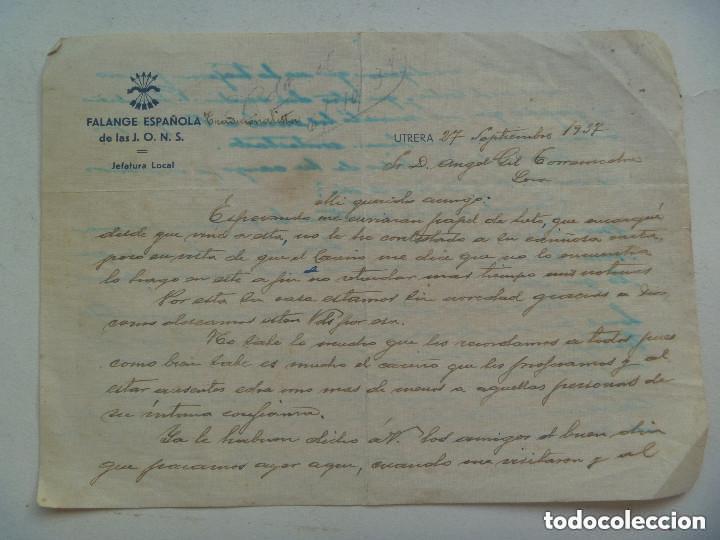 FALANGE ESPAÑOLA Tradicionalista
de las J. O. N. S.
Jefatura Local
UTRERA 27 Septiembre 1937
Sr D. Angel Gil
Lora
Mi querido amigo:
Esperando me enviaran papel de luto, que encargué
desde que vine a esta, no le he contestado a su cariñosa carta,
pero en vista de que el me dice que no lo encuentra
lo hago en este a fin no retardar mas tiempo mis noticias
Por esta su casa estamos sin novedad gracias a Dios
como deseamos esten Vds por esa.
No sabe lo mucho que les recordamos a todos pues
como bien sabe es mucho el cariño que les profesamos y al
estar ausentes echa uno mas de menos a aquellas personas de
su íntima confianza.
Ya le habran dicho á V. los amigos el buen dia
que pasamos ayer aqui, cuando me visitaron y al
todocoleccion.net